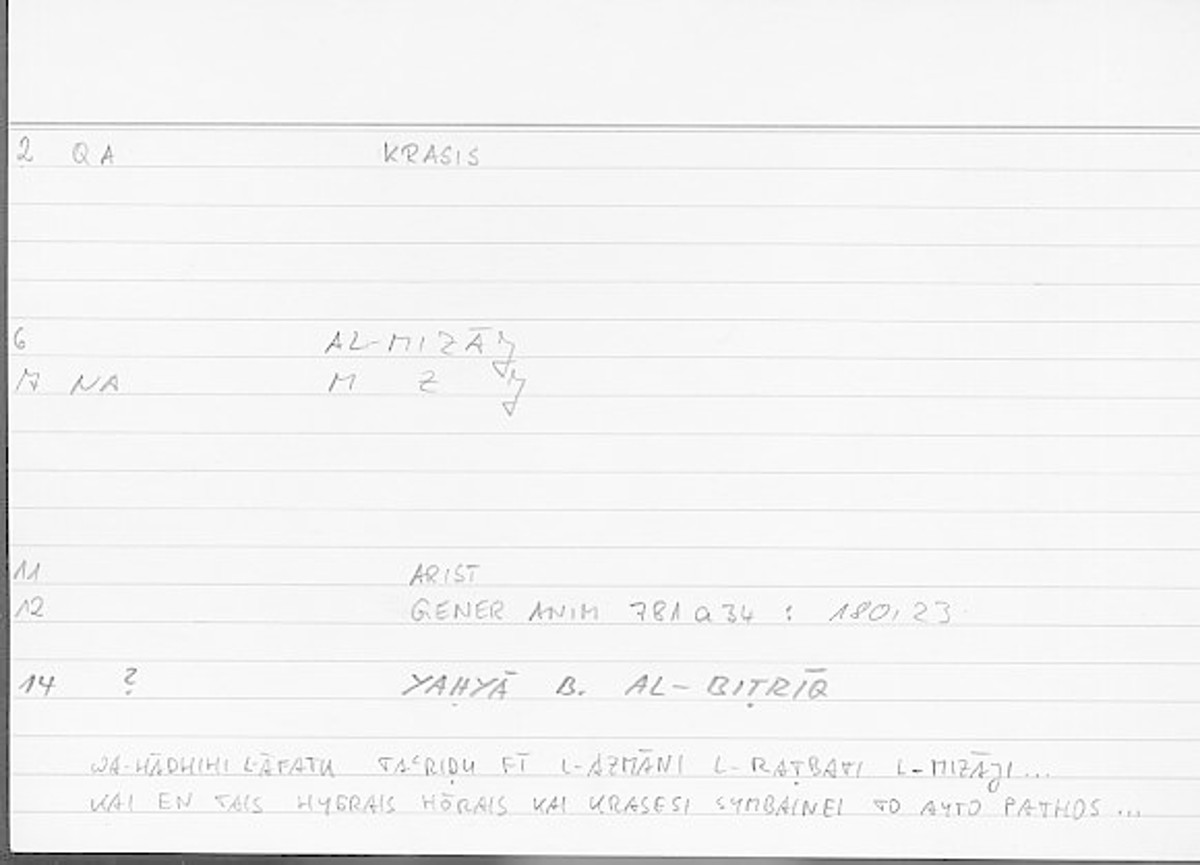 2 QA KRASIS
6 AL-MIZĀJ
7 NA M Z J
11 ARIST
12 GENER ANIM 781a34 : 180,23
14 ? YAḤYĀ B. AL-BIṬRĪQ
WA-HĀDHIHI L-ĀFATU TAʿRIḌU FĪ L-AZMĀNI L-RAṬBATI L-MIZĀJI...
KAI EN TAIS HYGRAIS HŌRAIS KAI KRASESI SYMBAINEI TO AYTO PATHOS ...